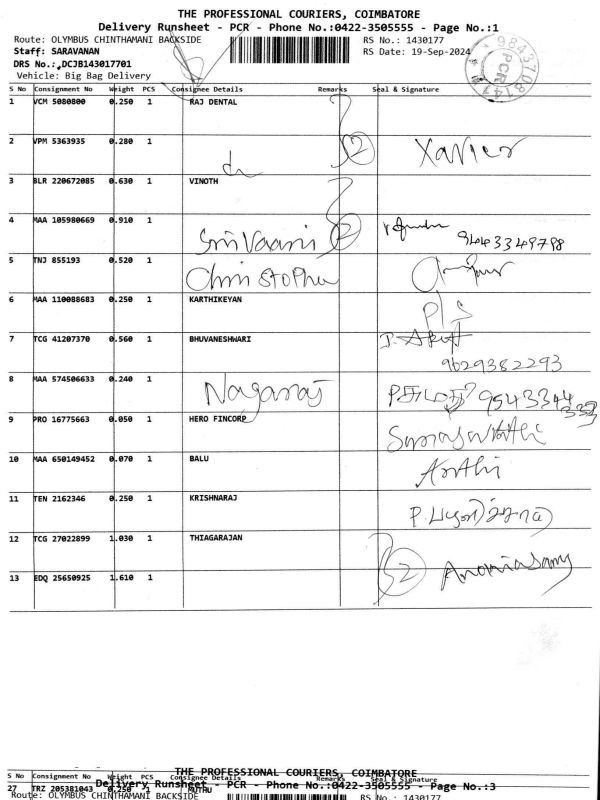 THE PROFESSIONAL COURIERS, COIMBATORE
Delivery Runsheet - PCR - Phone No.:0422-3505555 - Page No.:1
Route: OLYMBUS CHINTHAMANI BACKSIDE RS No.: 1430177
Staff: SARAVANAN RS Date: 19-Sep-2024
DRS No.: DCJB143017701
Vehicle: Big Bag Delivery
PCR
S No Consignment No Weight PCS Consignee Details Remarks Seal & Signature
1 VCM 5080800 0.250 1 RAJ DENTAL
2 VPM 5363935 0.280 1 2 Xavier
3 BLR 220672085 0.630 1 VINOTH
4 MAA 105980669 0.910 1 Srivaani 2 9443349798
5 TNJ 855193 0.520 1 Christopher
6 MAA 110088683 0.250 1 KARTHIKEYAN
7 TCG 41207370 0.560 1 BHUVANESHWARI
9629382293
8 MAA 574506633 0.240 1 Nagaraj 9543344333
9 PRO 16775663 0.050 1 HERO FINCORP
10 MAA 650149452 0.070 1 BALU Arthi
11 TEN 2162346 0.250 1 KRISHNARAJ
12 TCG 27022899 1.030 1 THIAGARAJAN
2
13 EDQ 25650925 1.610 1
THE PROFESSIONAL COURIERS, COIMBATORE
S No Consignment No Weight PCS Consignee Details Remarks Seal & Signature
Delivery Runsheet - PCR - Phone No.:0422-3505555 - Page No.:3
27 TRZ 205381043 0.250 1 MUTHU
Route: OLYMBUS CHINTHAMANI BACKSIDE RS No.: 1430177